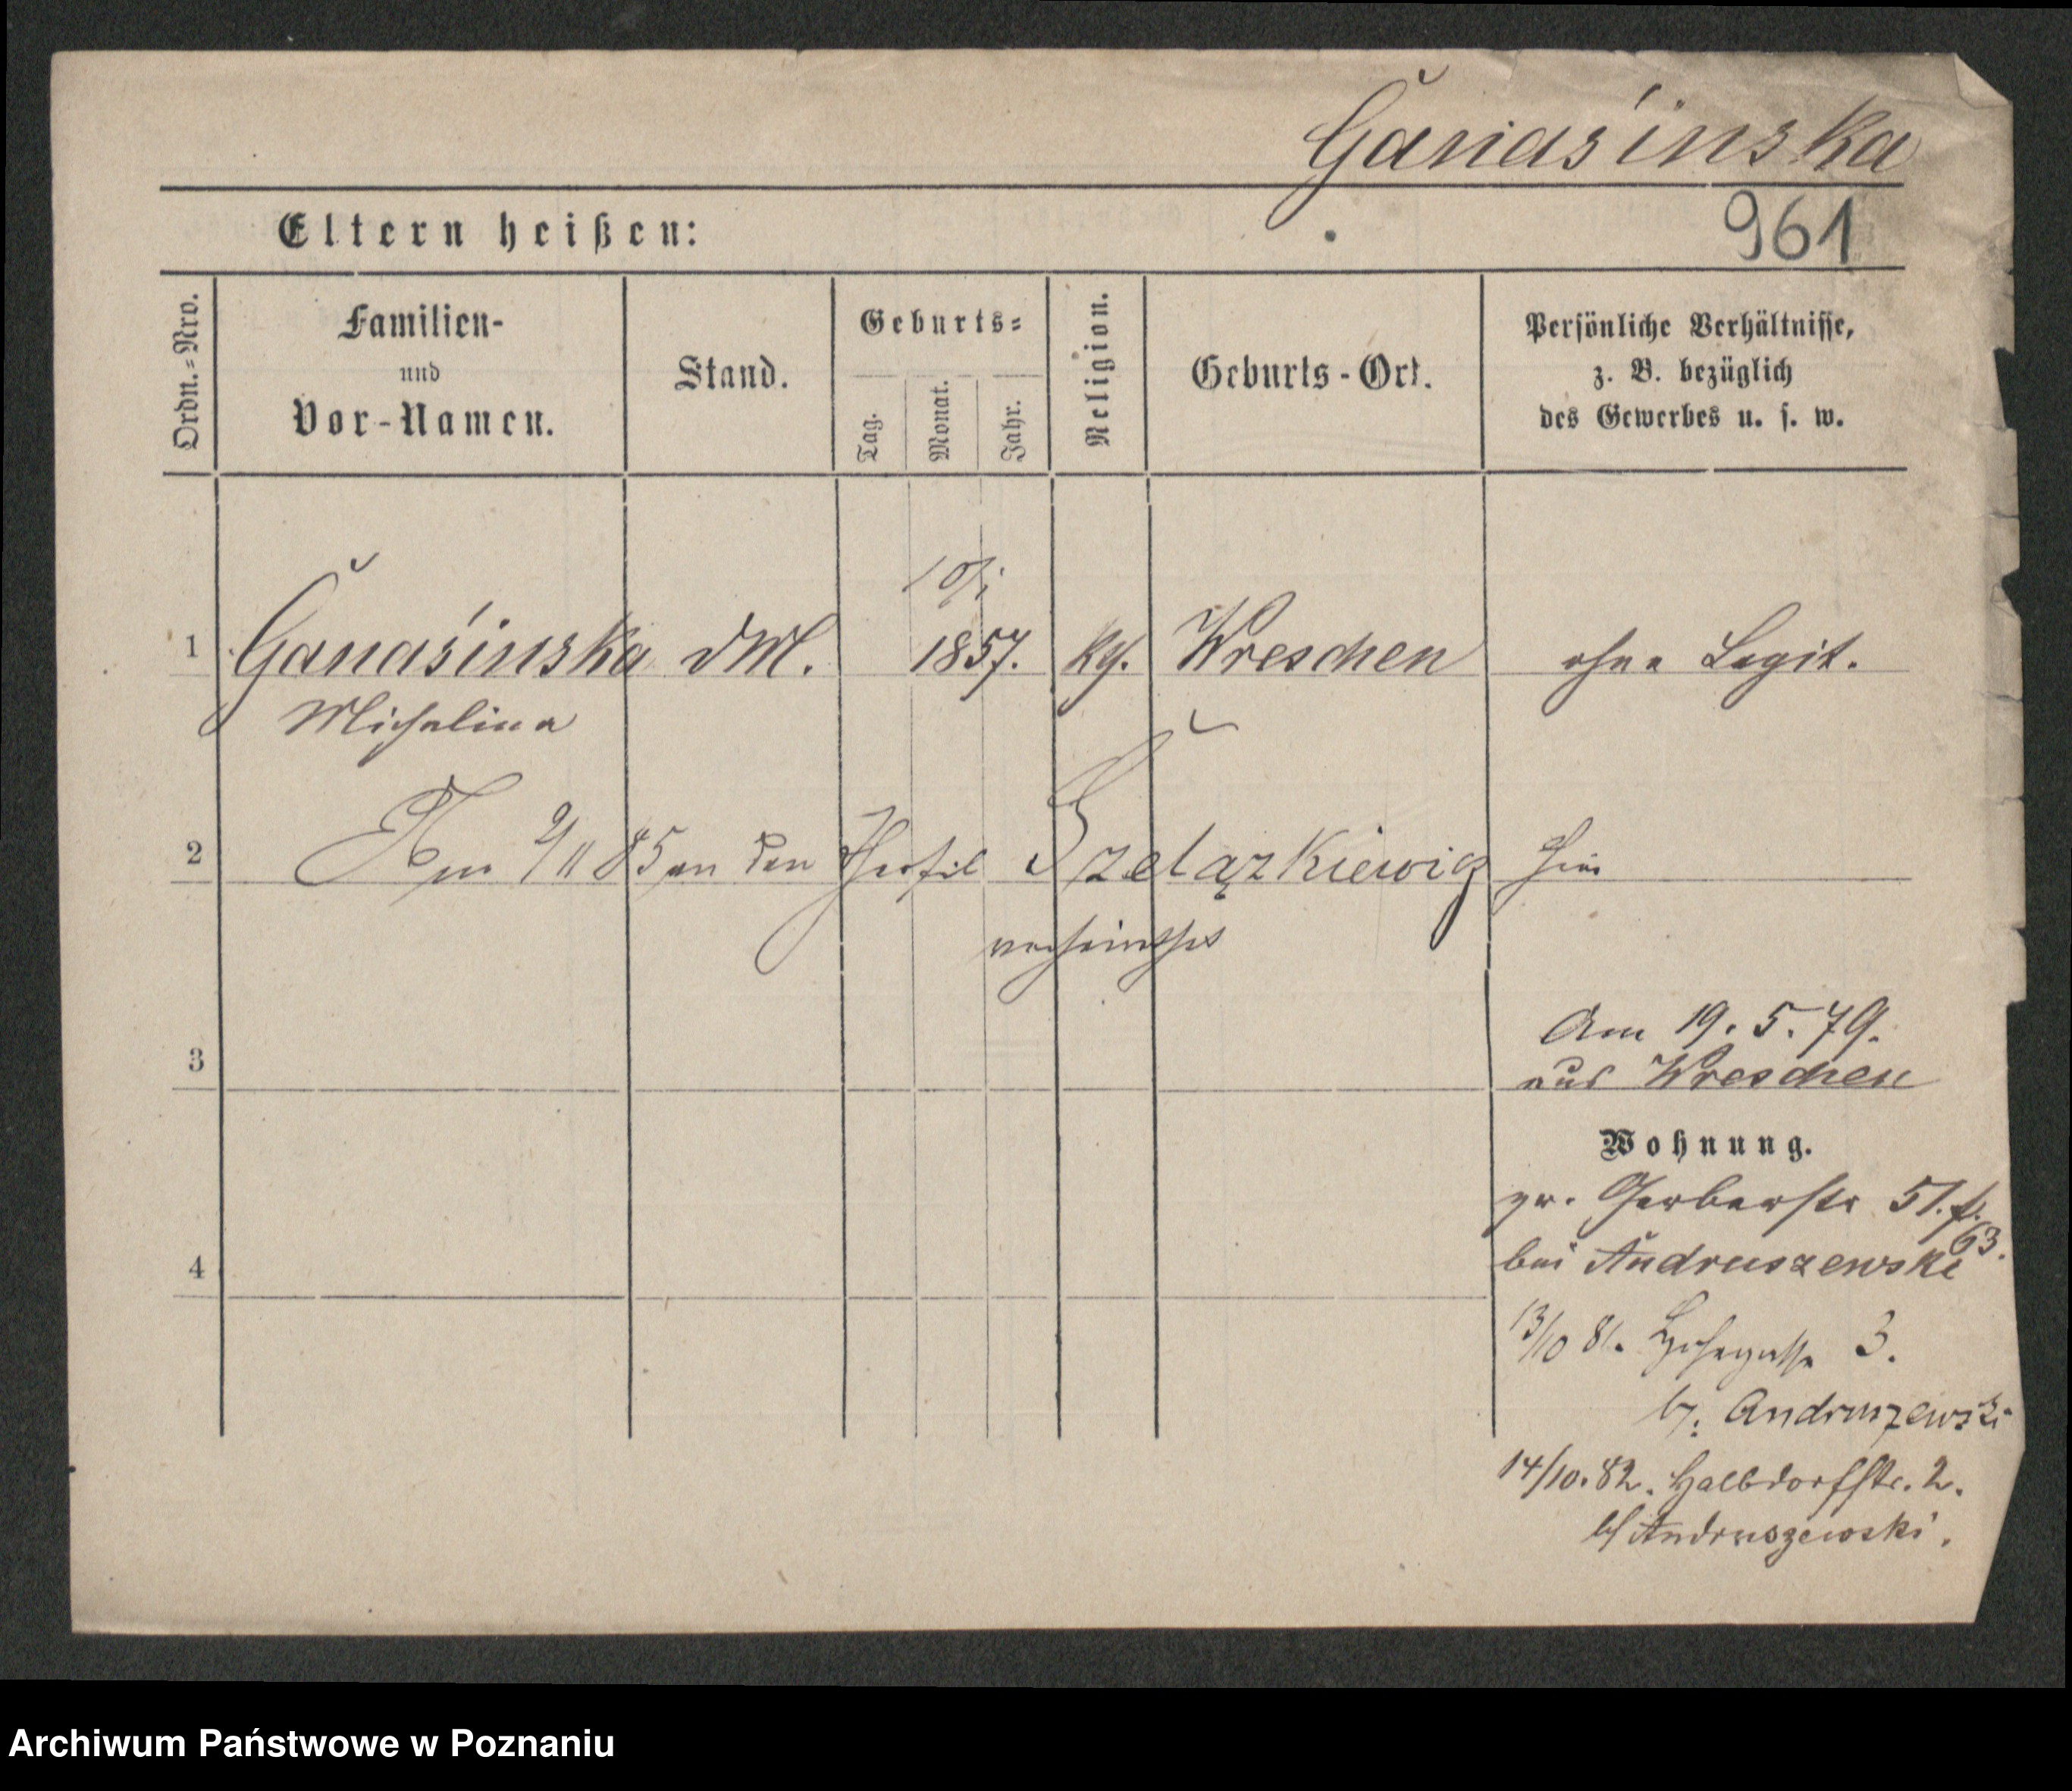 Ganasinska
961
Eltern heißen:
Ordn.=Nro.
Familien-
und
Vor-Namen.
Stand.
Geburts=
Tag.
Monat.
Jahr.
Religion.
Geburts-Ort.
Persönliche Verhältnisse,
z. B. bezüglich
des Gewerbes u. s. w.
1 Ganaśinska dM. 1857. kth. Wreschen ohne Legit.
Michalina
2 Am 9/11 85 an den Szelązkiewicz hier
3
Am 19. 5. 79.
aus Wreschen
Wohnung.
gr. Gerberstr 51.
4
bei Andruszewski
13/10 81. 3.
b. Andruszewski
14/10. 82. Halbdorfstr. 2.
b/ Andruszewski.
Archiwum Państwowe w Poznaniu